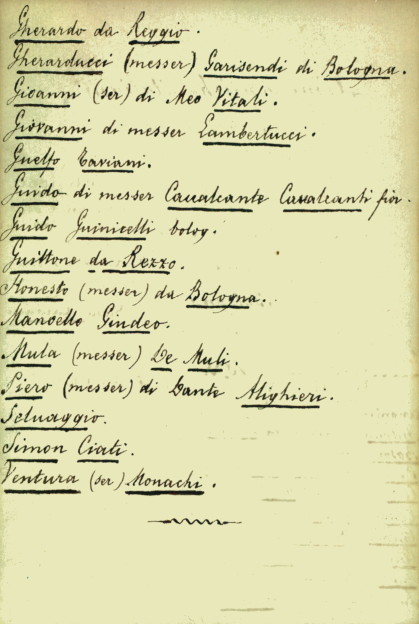 Gherardo da Reggio.
Gherarducci (messer) Garisendi di Bologna.
Gioanni (ser) di Meo Vitali.
Giovanni di messer Lambertucci.
Guelfo Taviani.
Guido di messer Cavalcante Cavalcanti fior.
Guido Guinicelli bolog.
Guittone da Rezzo.
Honesto (messer) da Bologna.
Manoello Giudeo.
Mula (messer) De Muli.
Piero (messer) di Dante Alighieri.
Selvaggio.
Simon Ciati.
Ventura (ser) Monachi.